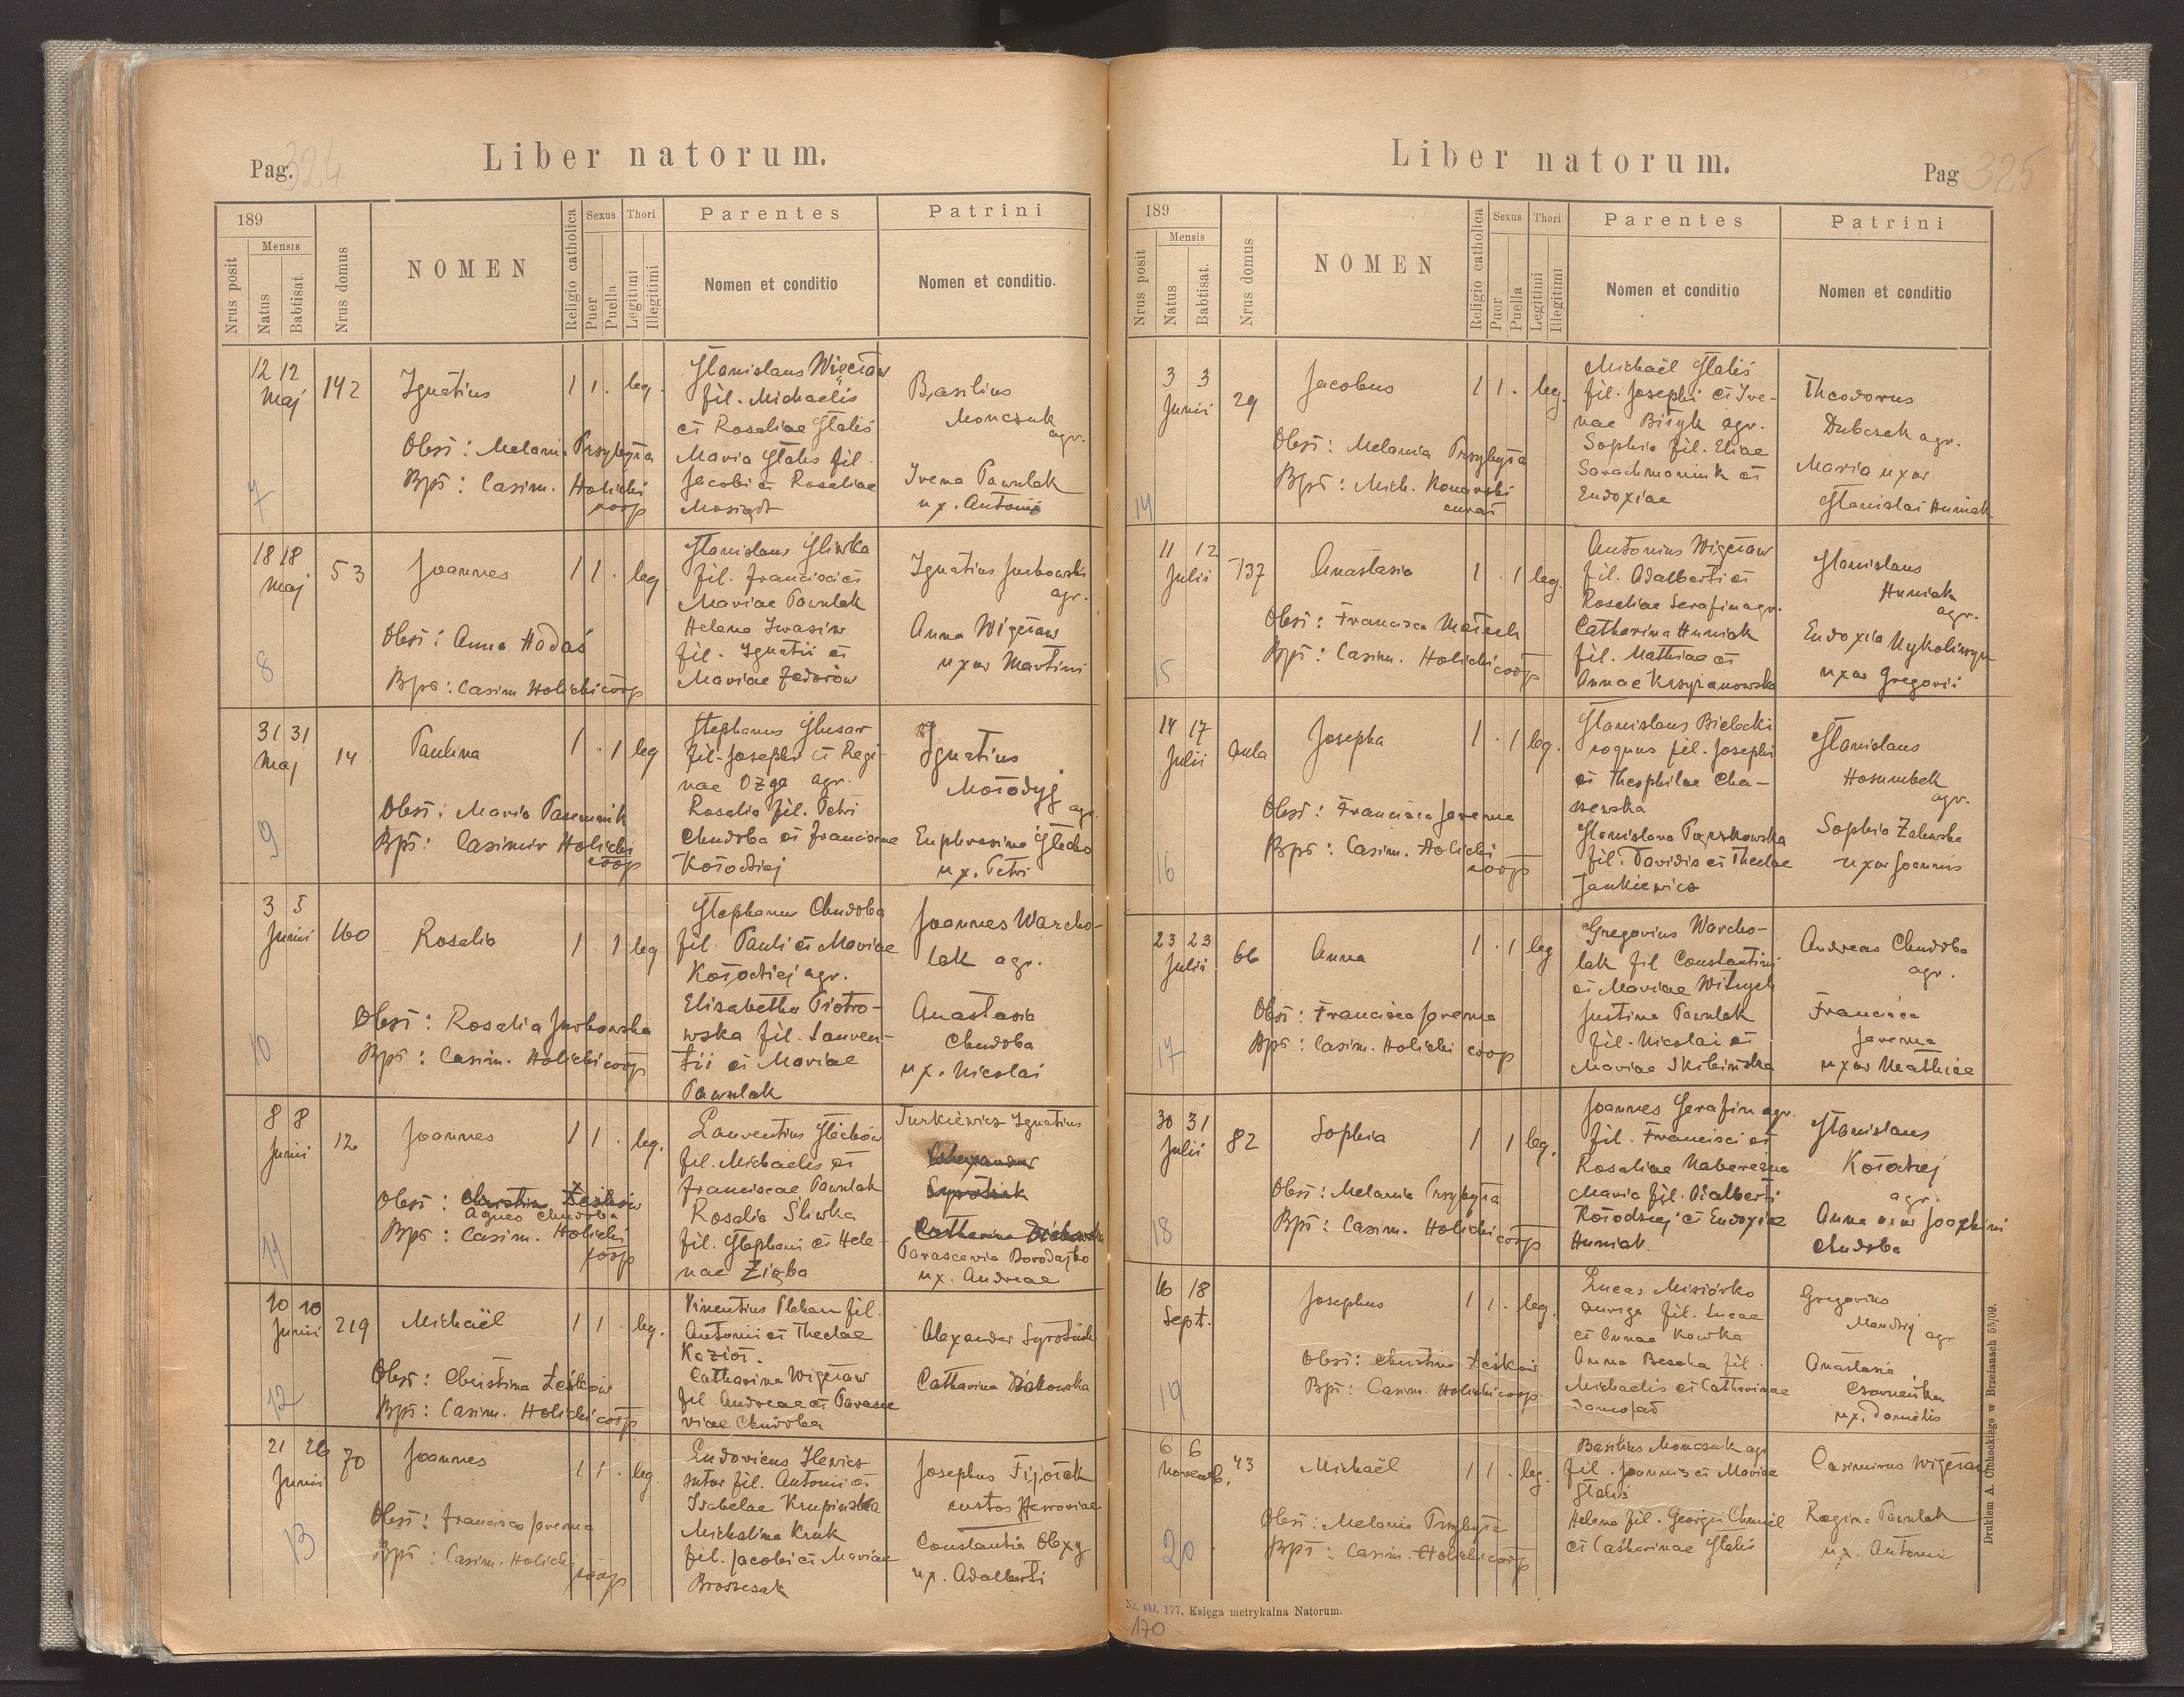 Pag. 324
Liber natorum.
189
Mensis
Nrus posit
Natus
Babtisat.
Nrus domus
NOMEN
Religio catholica
Sexus
Puer
Puella
Thori
Legitimi
Illegitimi
Parentes
Nomen et conditio
Patrini
Nomen et conditio.
7
12 12
Maj
142
Ignatius
1 1 . leg.
Obst: Melania Przybyła
Bpt: Casim. Holicki
coop
Stanislaus Więcław
fil. Michaelis
et Rosaliae Staliś
Maria Staliś fil.
Jacobi et Rosaliae
Basilius
Monczuk
agr.
Irena Pawulak
ux. Antonii
8
18 18
Maj
53
Joannes
1 1 . leg
Obst: Anna Hadaś
Bpt: Casim Holicki coop
Stanislaus Śliwka
fil. Francisci et
Mariae Pawulak
Helena Iwasiw
fil. Ignatii et
Mariae Fedorów
Ignatius Jurkowski
agr.
Anna Więcław
uxor Martini
9
31 31
Maj
14
Paulina
1 . 1 leg
Obst: Maria
Bpt: Casimir Holicki
coop
Stephanus Ślusar
fil. Josephi et Regi-
nae Ożga agr.
Rosalia fil. Petri
Chudoba et Franciscae
Kołodziej
Ignatius
Mołodyj
agr.
Euphrosina
ux. Petri
10
3 5
Junii
160
Rosalia
1 . 1 leg
Obst: Rosalia Jurkowska
Bpt: Casim. Holicki coop
Stephanus Chudoba
fil. Pauli et Mariae
Kołodziej agr.
Elisabetha Piotro-
wska fil. Lauren-
tii et Mariae
Pawulak
Joannes Warcho-
lak agr.
Anastasia
Chudoba
ux. Nicolai
11
8 8
Junii
12
Joannes
1 1 . leg.
Obst: Christina Leśków
Agnes Chudoba
Bpt: Casim. Holicki
coop
Laurentius
fil. Michaelis et
Franciscae Pawulak
Rosalia Śliwka
fil. Stephani et Hele-
nae Zięba
Turkiewicz Ignatius
Alexander
Syrotiuk
Catharina
Parascevia Borodajko
ux. Andreae
12
10 10
Junii
219
Michaël
1 1 . leg.
Obst: Christina Leśków
Bpt: Casim. Holicki coop
Vincentius Pleban fil.
Antonii et Theclae
Kozioł.
Catharina Więcław
fil. Andreae et Parasce
viae Chudoba
Alexander Syrotiuk
Catharina
13
21 26
Junii
70
Joannes
1 1 . leg
Obst: Francisca Jarema
Bpt: Casim. Holicki
coop
Ludovicus Ilewicz
sutor fil. Antonii et
Isabelae Krupińska
Michalina Kruk
fil. Jacobi et Mariae
Josephus Fijołek
custos
Constantia
ux. Adalberti
Liber natorum.
Pag 325
189
Mensis
Nrus posit
Natus
Babtisat.
Nrus domus
NOMEN
Religio catholica
Sexus
Puer
Puella
Thori
Legitimi
Illegitimi
Parentes
Nomen et conditio
Patrini
Nomen et conditio
14
3 3
Junii
29
Jacobus
1 1 . leg.
Obst: Melania Przybyła
Bpt: Mich. Konarski
curat
Michaël Staliś
fil. Josephi et Ire-
nae agr.
Sophia fil. Eliae
Sarachmaniuk et
Eudoxiae
Theodorus
Dubczak agr.
Maria uxor
Stanislai Huniak
15
11 12
Julii
137
Anastasia
1 . 1 leg.
Obst: Francisca
Bpt: Casim. Holicki coop
Antonius Więcław
fil. Adalberti et
Rosaliae Serafin agr.
Catharina Huniak
fil. Mathiae et
Annae Krzyżanowska
Stanislaus
Huniak
agr.
Eudoxia Mykolisyn
uxor Gregorii
16
14 17
Julii
aula
Josepha
1 . 1 leg.
Obst: Francisca Jarema
Bpt: Casim. Holicki
coop
Stanislaus Bielecki
coquus fil. Josephi
et Theophilae Cha-
szewska
Stanislava
fil. Davidis et Theclae
Jankiewicz
Stanislaus
agr.
Sophia Zalewska
uxor Joannis
17
23 23
Julii
66
Anna
1 . 1 leg
Obst: Francisca Jarema
Bpt: Casim. Holicki coop
Gregorius Warcho-
lak fil Constantini
et Mariae Witrych
Justina Pawulak
fil. Nicolai et
Mariae Skibińska
Andreas Chudoba
agr.
Francisca
Jarema
uxor Mathiae
18
30 31
Julii
82
Sophia
1 . 1 leg.
Obst: Melania Przybyła
Bpt: Casim. Holicki coop
Joannes Serafin agr.
fil. Francisci et
Rosaliae Nabereżna
Maria fil. Adalberti
Kołodziej et Eudoxiae
Huniak.
Stanislaus
Kołodziej
agr.
Anna uxor Josephini
Chudoba
19
16 18
Sept.
Josephus
1 1 . leg.
Obst: Christina Leśków
Bpt: Casim. Holicki coop.
Lucas Misiórko
auriga fil. Lucae
et Annae Kawka
Anna fil.
Michaelis et Catharinae
Gregorius
agr
Anastasia
ux. Danielis
20
6 6
Novemb.
43
Michaël
1 1 . leg.
Obst: Melania Przybyła
Bpt: Casim. Holicki coop
Basilius Monczuk agr
fil. Joannis et Mariae
Staliś
Helena fil. Georgii Chmiel
et Catharinae Staliś
Casimirus Więcław
Regina Pawulak
ux. Antonii
Drukiem A. Cichockiego w Brzeżanach 55/09.
Nr. skł. 177. Księga metrykalna Natorum.
170